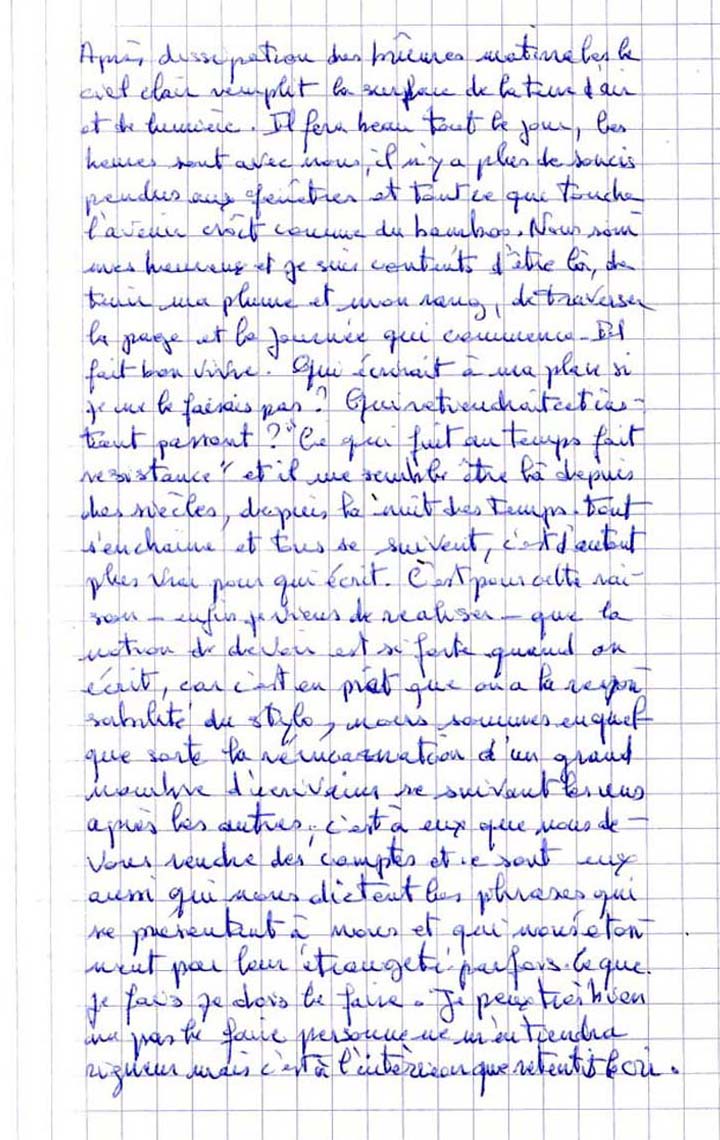 Après dissipation des brumes matinales le
ciel clair remplit la surface de la terre d'air
et de lumière. Il fera beau tout le jour, les
heures sont avec nous, il n'y a plus de soucis
pendus aux fenêtres et tout ce que touche
l'avenir croît comme du bamboo. Nous som
mes heureux et je suis contents d'être là, de
tenir ma plume et mon rang, de traverser
la page et la journée qui commence. Il
fait bon vivre. Qui écrirait à ma place si
je ne le faisais pas? Qui retiendrait cet ins-
tant passant? "Ce qui fuit au temps fait
resistance" et il me semble être là depuis
des siècles, depuis la nuit des temps. Tout
s'enchaine et tous se suivent, c'est d'autant
plus vrai pour qui écrit. C'est pour cette rai-
son – enfin je viens de realiser – que la
notion de devoir est si forte quand on
écrit, car c'est en prêt que on a la respon
sabilité du stylo, nous sommes en quel
que sorte la réincarnation d'un grand
nombre d'écrivains se suivant les uns
après les autres, c'est à eux que nous de-
vons rendre des comptes et ce sont eux
aussi qui nous dictent les phrases qui
se présentent à nous et qui nous éton
nent par leur étrangeté parfois. Ce que
je fais je dois le faire. Je peux très bien
ne pas le faire personne ne m'en tiendra
rigueur mais c'est à l'intérieur que retentit le cri.